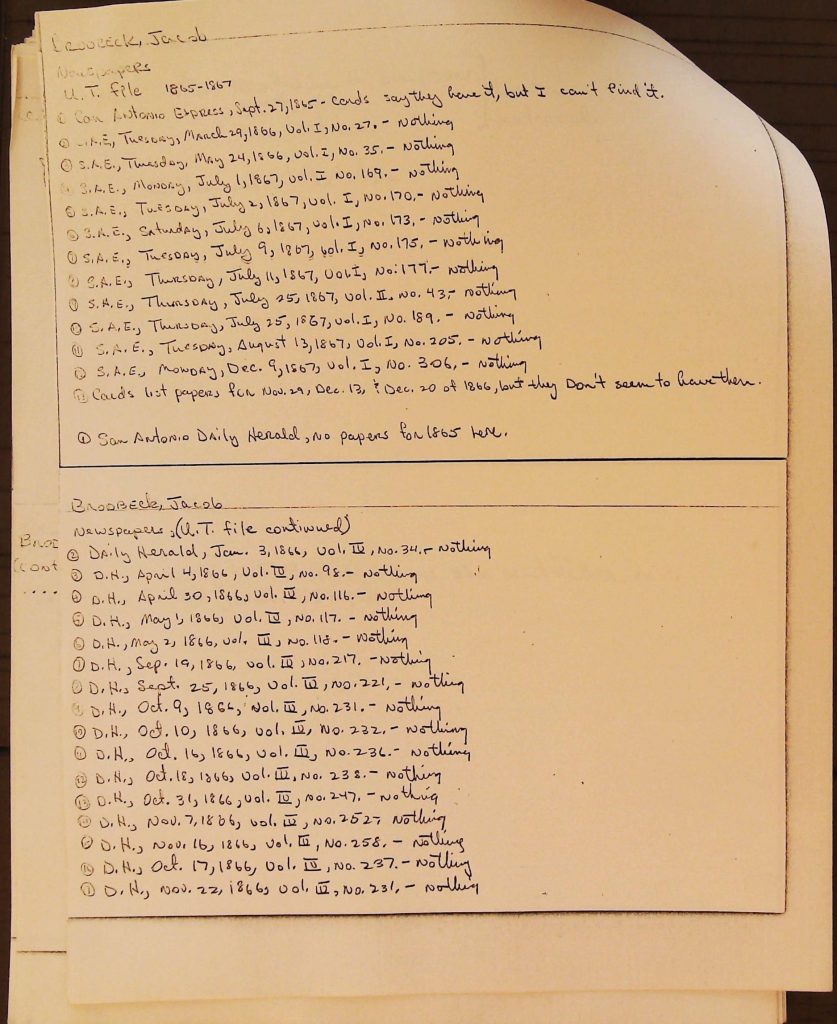 BRODBECK, Jacob
Newspapers
U.T. file 1865-1867
① San Antonio Express, Sept. 27, 1865 - Cards say they have it, but I can't find it.
② S.A.E., Tuesday, March 29, 1866, Vol. I, No. 27. - Nothing
③ S.A.E., Thuesday, May 24, 1866, Vol. I, No. 35. - Nothing
④ S.A.E., Monday, July 1, 1867, Vol. I No. 169. - Nothing
⑤ S.A.E., Tuesday, July 2, 1867, Vol. I, No. 170. - Nothing
⑥ S.A.E., Saturday, July 6, 1867, Vol. I, No. 173. - Nothing
⑦ S.A.E., Tuesday, July 9, 1867, Vol. I, No. 175. - Nothing
⑧ S.A.E., Thursday, July 11, 1867, Vol. I, No. 177. - Nothing
⑨ S.A.E., Thursday, July 25, 1867, Vol. II, No. 43. - Nothing
⑩ S.A.E., Thursday, July 25, 1867, Vol. I, No. 189. - Nothing
⑪ S.A.E., Tuesday, August 13, 1867, Vol. I, No. 205. - Nothing
⑫ S.A.E., Monday, Dec. 9, 1867, Vol. I, No. 306. - Nothing
⑬ Cards list papers for Nov. 29, Dec. 13, & Dec. 20 of 1866, but they Don't seem to have them.
① San Antonio Daily Herald, No papers for 1865 here.
BRODBECK, Jacob
Newspapers, (U.T. file continued)
② Daily Herald, Jan. 3, 1866, Vol. IV, No. 34. - Nothing
③ D.H., April 4, 1866, Vol. IV, No. 98. - Nothing
④ D.H., April 30, 1866, Vol. IV, No. 116. - Nothing
⑤ D.H., May 1, 1866, Vol. IV, No. 117. - Nothing
⑥ D.H., May 2, 1866, Vol. IV, No. 118. - Nothing
⑦ D.H., Sep. 19, 1866, Vol. IV, No. 217. - Nothing
⑧ D.H., Sept. 25, 1866, Vol. IV, No. 221. - Nothing
⑨ D.H., Oct. 9, 1866, Vol. IV, No. 231. - Nothing
⑩ D.H., Oct. 10, 1866, Vol. IV, No. 232. - Nothing
⑪ D.H., Oct. 16, 1866, Vol. IV, No. 236. - Nothing
⑫ D.H., Oct. 18, 1866, Vol. IV, No. 238. - Nothing
⑬ D.H., Oct. 31, 1866, Vol. IV, No. 247. - Nothing
⑭ D.H., Nov. 7, 1866, Vol. IV, No. 252. - Nothing
⑮ D.H., Nov. 16, 1866, Vol. IV, No. 258. - Nothing
⑯ D.H., Oct. 17, 1866, Vol. IV, No. 237. - Nothing
⑰ D.H., Nov. 22, 1866, Vol. IV, No. 231. - Nothing